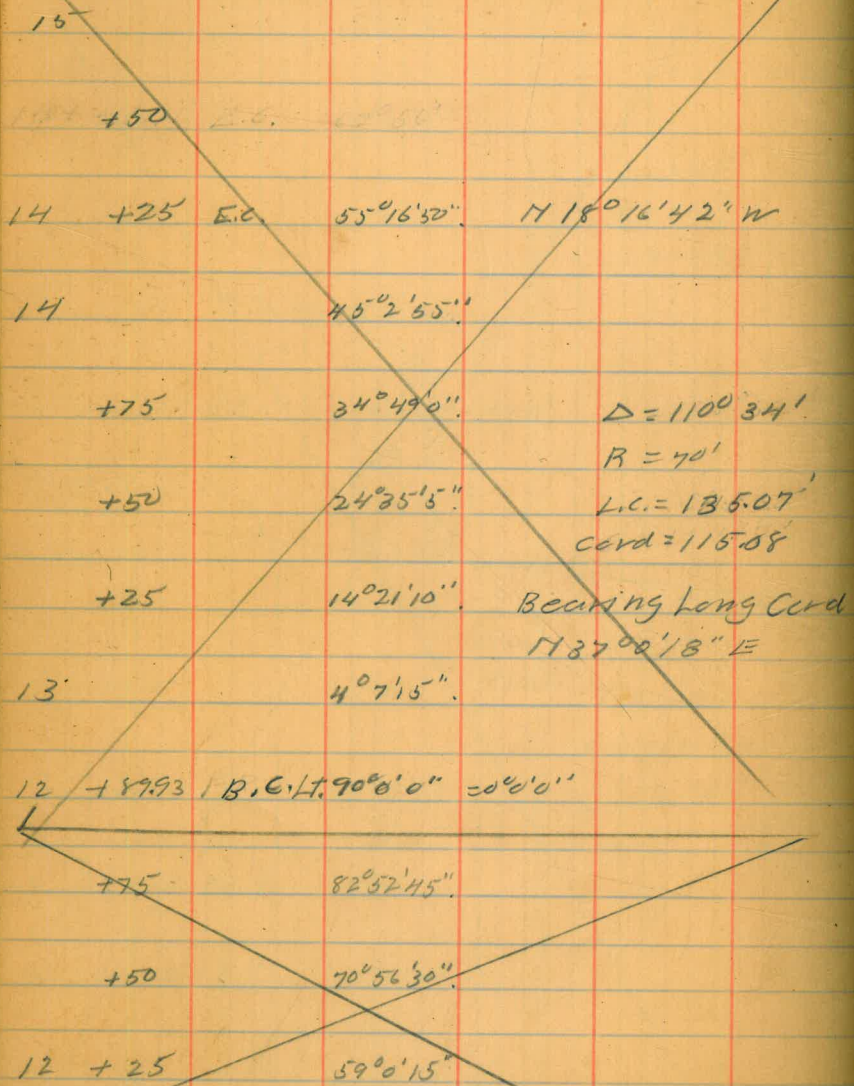 15
+50 E.C.
14 +25 E.C. 55°16'50" N 18°16'42" W
14 45°2'55"
+75 34°49'0" Δ = 110° 34'
R = 70'
+50 24°35'5" L.C. = 135.07'
Cord = 115.08
+25 14°21'10" Bearing Long Cord
N 37°0'18" E
13 4°7'15"
12 +89.93 B.C. Lt. 90°0'0" =0°0'0"
+75 82°52'45"
+50 70°56'30"
12 +25 59°0'15"